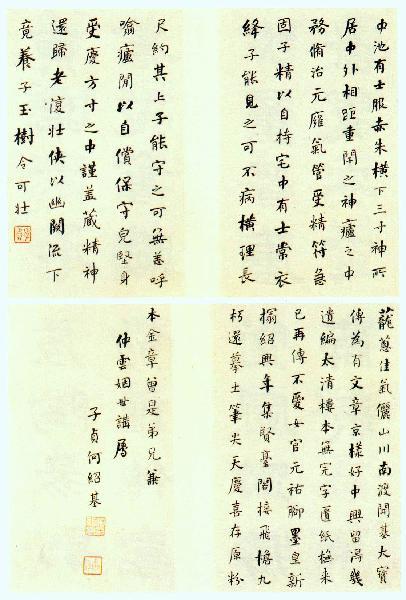 中池有士服赤朱橫下三寸神所
居中外相距重閉之神廬之中
務脩治元廱氣管受精符急
固子精以自持宅中有士常衣
絳子能見之可不病橫理長
尺約其上子能守之可無恙呼
噏廬間以自償保守完堅身
受慶方寸之中謹蓋藏精神
還歸老復壯俠以幽闕流下
竟養子玉樹令可壯
蘢蔥佳氣儷山川南渡開基大寶
傳為有文章京樣好中興留得幾
遺編太清樓本無完字匱紙極來
已再傳不憂女官元祐腳墨皇新
搨紹興年集賢臺閣接飛檐九
朽還摹土筆尖天慶喜存原粉
本金章曾是弟兄兼
仲雲姻世講屬
子貞何紹基